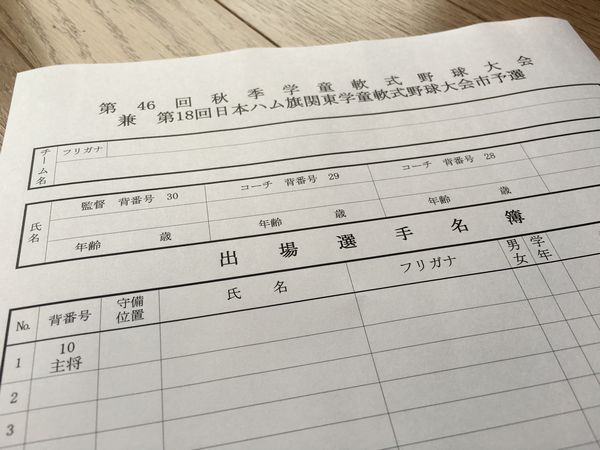 第 46 回 秋 季 学 童 軟 式 野 球 大 会
兼 第18回日本ハム旗関東学童軟式野球大会市予選
チーム名 フリガナ
氏名 監督 背番号 30 コーチ 背番号 29 コーチ 背番号 28
年齢 歳 年齢 歳 年齢 歳
出 場 選 手 名 簿
No. 背番号 守備位置 氏 名 フリガナ 男女 学年
1 10 主将
2
3